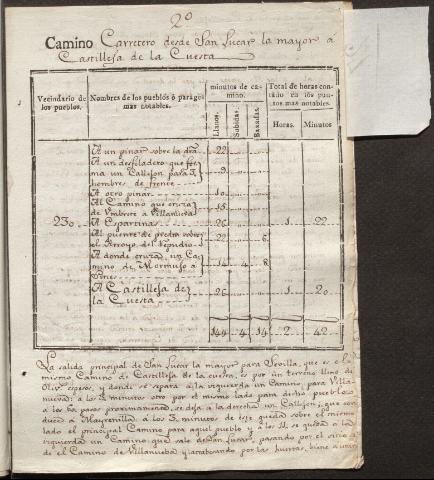 2º
Camino Carretero desde San Lucar la mayor a
Castilleja de la Cuesta
Vecindario de los pueblos. Nombres de los pueblos ò parages mas notables. minutos de camino. Total de horas contado en los puntos mas notables.
Llanos. Subidas. Baxadas. Horas. Minutos
A un pinar sobre la dra. 22
A un desfiladero que
ma un Callejon para 3
hombres de frente 9
A otro pinar 10
Al Camino que cruza
de Umbrete à Villanueva 15
230 A Espartinas 26 1 22
Al puente de piedra sobre
el Arroyo del Repudio 22 6
A donde cruza un Camino de
Bormujo a 14 4 8
A Castilleja de
la Cuesta 26 1 20
144 4 14 2 42
La salida principal de San Lucar la mayor para Sevilla, que es el
mismo Camino de Castilleja de la cuesta, es por un terreno llano de
Oliv. espesos, y donde se separa à la izquierda un Camino, para Villanueva:
a los 3 minutos otro por el mismo lado para dicho pueblo
a los 60 pasos proximamente, se deja a la derecha un Callejon, que conduce
a Mayrenilla à los 3 minutos de este queda sobre el mismo
lado el principal Camino para aquel pueblo y a los 11 se queda a la
izquierda un Camino que sale de San Lucar, pasando por el
de el Camino de Villanueva y por las huertas, biene a